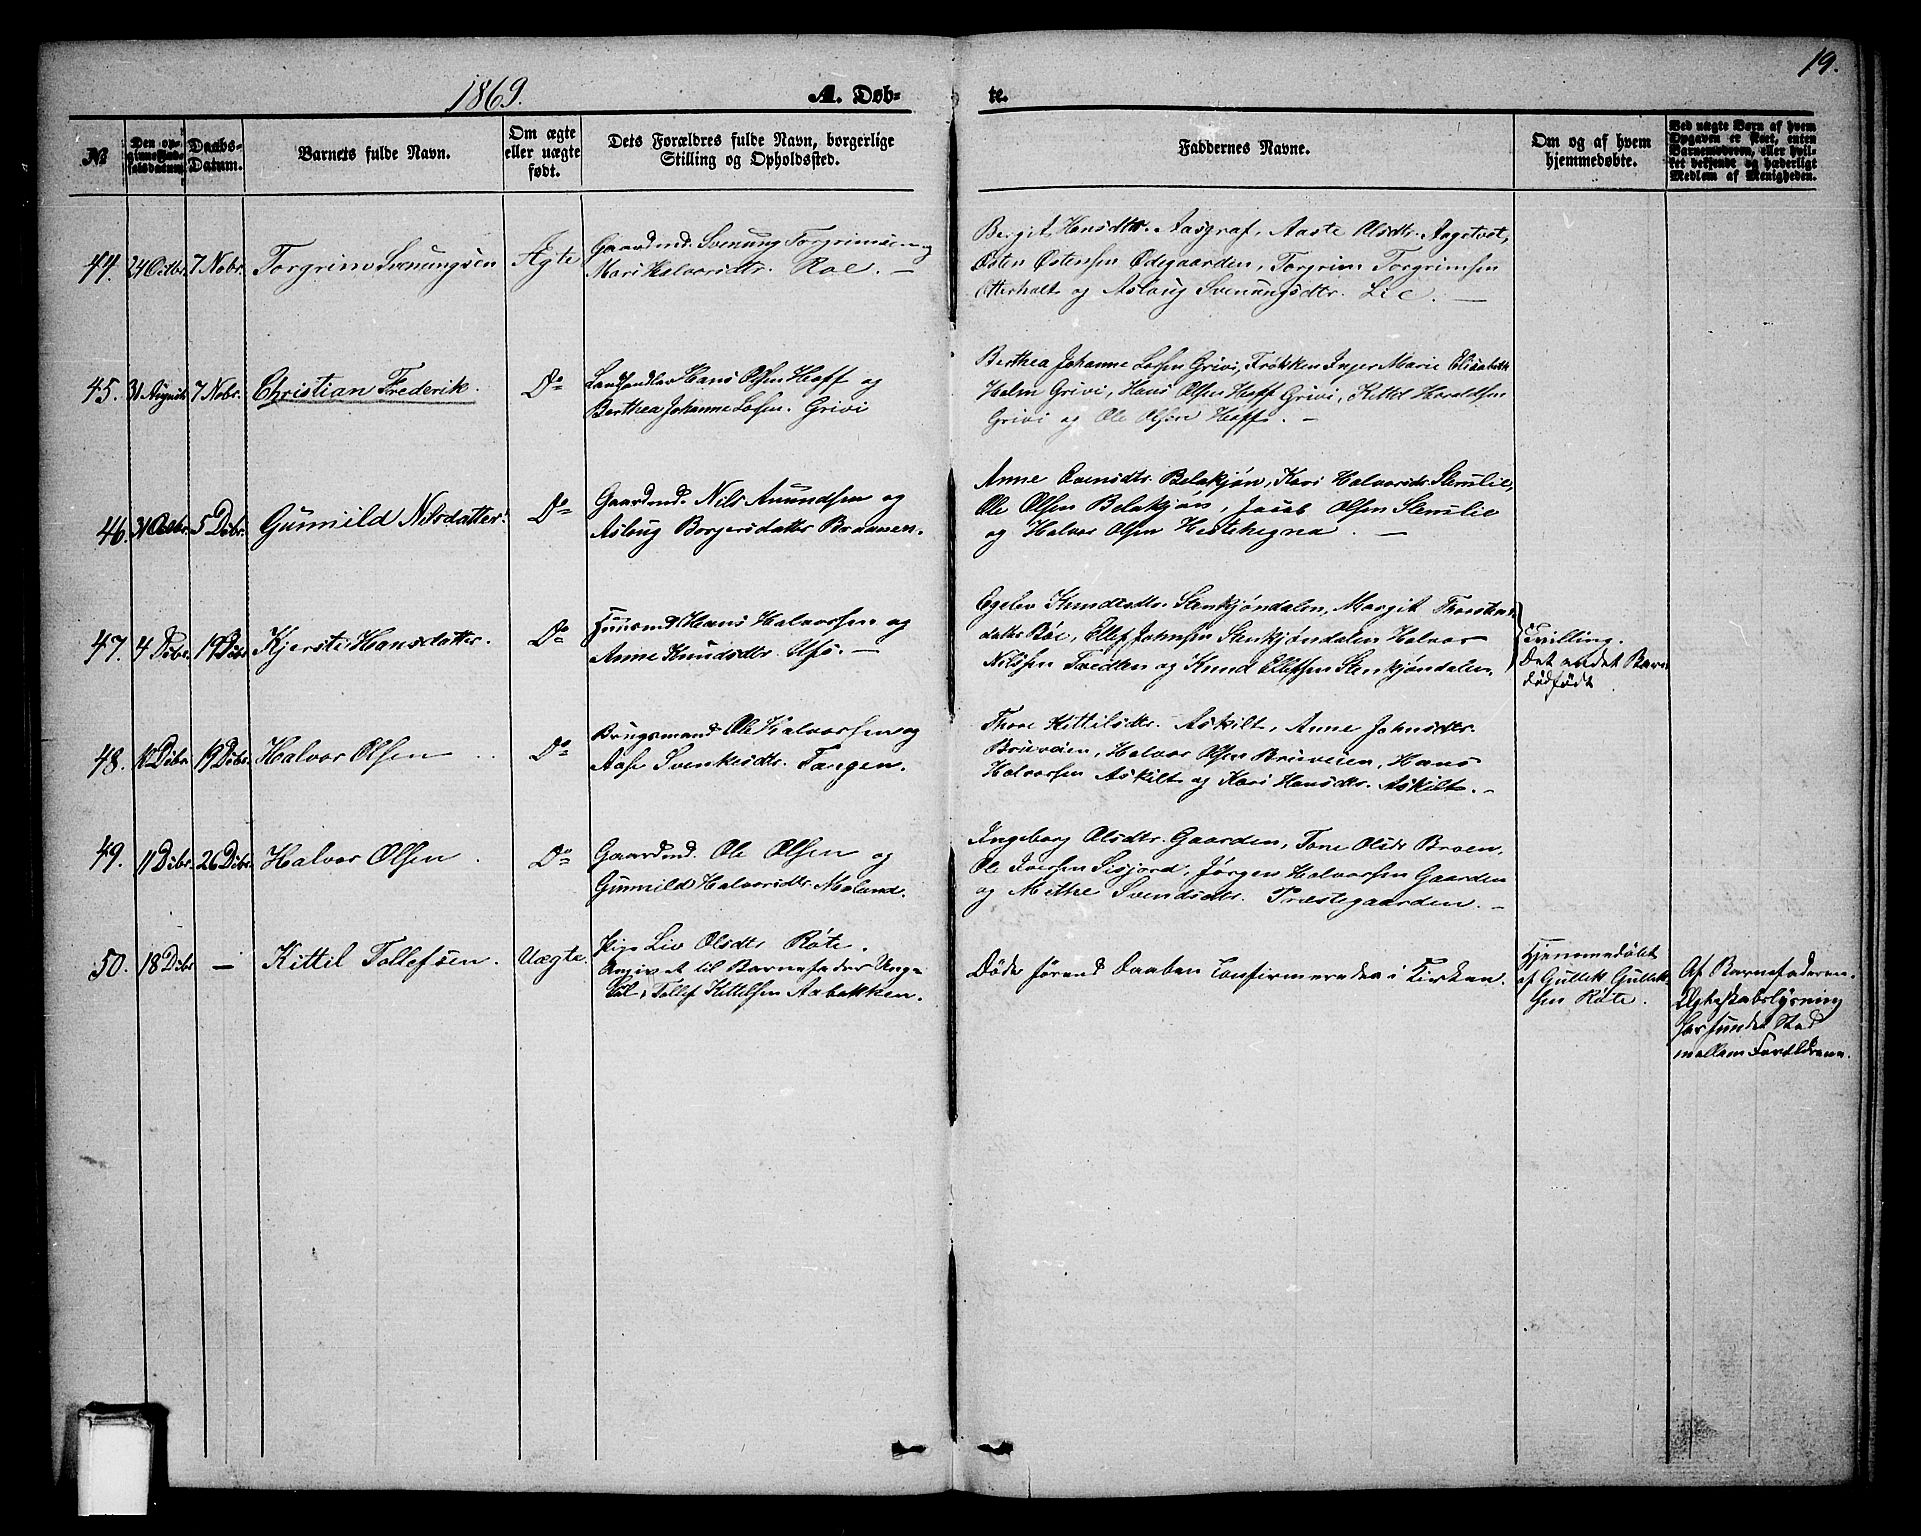 19.
1869. A. Døb- te.
№
Den opginne Fødselsdatum.
Daabs-Datum.
Barnets fulde Navn.
Om ægte eller uægte født.
Dets Forældres fulde Navn, borgerlige Stilling og Opholdssted.
Faddernes Navne.
Om og af hvem hjemmedøbte.
Ved uægte Barn af hvem Opgaven er skeet, enten Barnemoderen, eller hvilket bekjendt og hæderligt Medlem af Menigheden.
44. 24 Octbr. 7 Nobr. Torgrim Svenungsen Ægte
Gaardmd. Svenung Torgrimsen og
Mari Halvorsdtr. Roe. —
Bergit Hansdtr. Aasgraf, Aaste Olsdtr. Aagetvet,
Østen Østensen Ødegaarden, Torgrim Torgrimsen
Otterholt og Aslaug Svenungsdtr. Lie. —
45. 31 August 7 Nobr. Christian Frederik. Do
Landhandler Hans Olsen Hoff og
Berthea Johanne Losen. Grivi
Berthea Johanne Losen Grivi, Frøkken Inger Marie Elisabeth
Holm Grivi, Hans Olsen Hoff Grivi, Kittil Haraldsen
Grivi og Ole Olsen Hoff. —
46. 31 Octbr. 5 Dcbr. Gunnild Nilsdatter. Do
Gaardmd. Nils Amundsen og
Aslaug Borgersdatter Braanen.
Anne Evensdtr. Belakjøn, Kari Halvorsdtr. Stenslie,
Ole Olsen Belakjøn, Jacob Olsen Stenslie
og Halvor Olsen Hestehegna. —
47. 4 Dcbr. 19 Dcbr Kjersti Hansdatter. Do
Huusmd. Hans Halvorsen og
Anne Knudsdtr. Ufs. —
Egelev Knudsdtr. Stenkjøndalen, Margit Thorsten
datter Bøe, Ellef Johnsen Stenkjøndalen Halvor
Nilssen Tvedten og Knud Ellefsen Stenkjøndalen.
Tvilling.
Det andet Barn
dødfødt
48. 10 Dcbr. 19 Dcbr. Halvor Olsen Do
Brugsmand Ole Halvorsen og
Aase Svenkesdtr. Tangen.
Thore Kittilsdtr. Askilt, Anne Johnsdtr.
Brueveien, Halvor Olsen Brueveien, Hans
Halvorsen Askilt og Kari Hansdtr. Askilt. —
49. 11 Dcbr. 26 Dcbr. Halvor Olsen. Do
Gaardmd. Ole Olsen og
Gunnild Halvorsdtr. Moland.
Ingeborg Olsdtr. Gaarden, Tone Olsdtr Broen,
Ole Iversen Sisjord, Jørgen Halvorsen Gaarden
og Methe Svendsdtr. Præstegaarden. —
50. 18 Dcbr — Kittil Tollefsen. Uægte.
Pige Liv Olsdtr Røte.
Angivet til Barnefader Ung-
karl, Tollef Kittilsen Aabakken.
Døde førend Daaben Confirmeredes i Kirken.
Hjemmedøbt
af Gullek Gullek-
sen Røte.
Af Barnefaderen.
Ægteskabslysning
har fundet Sted
mellem Forældrene.